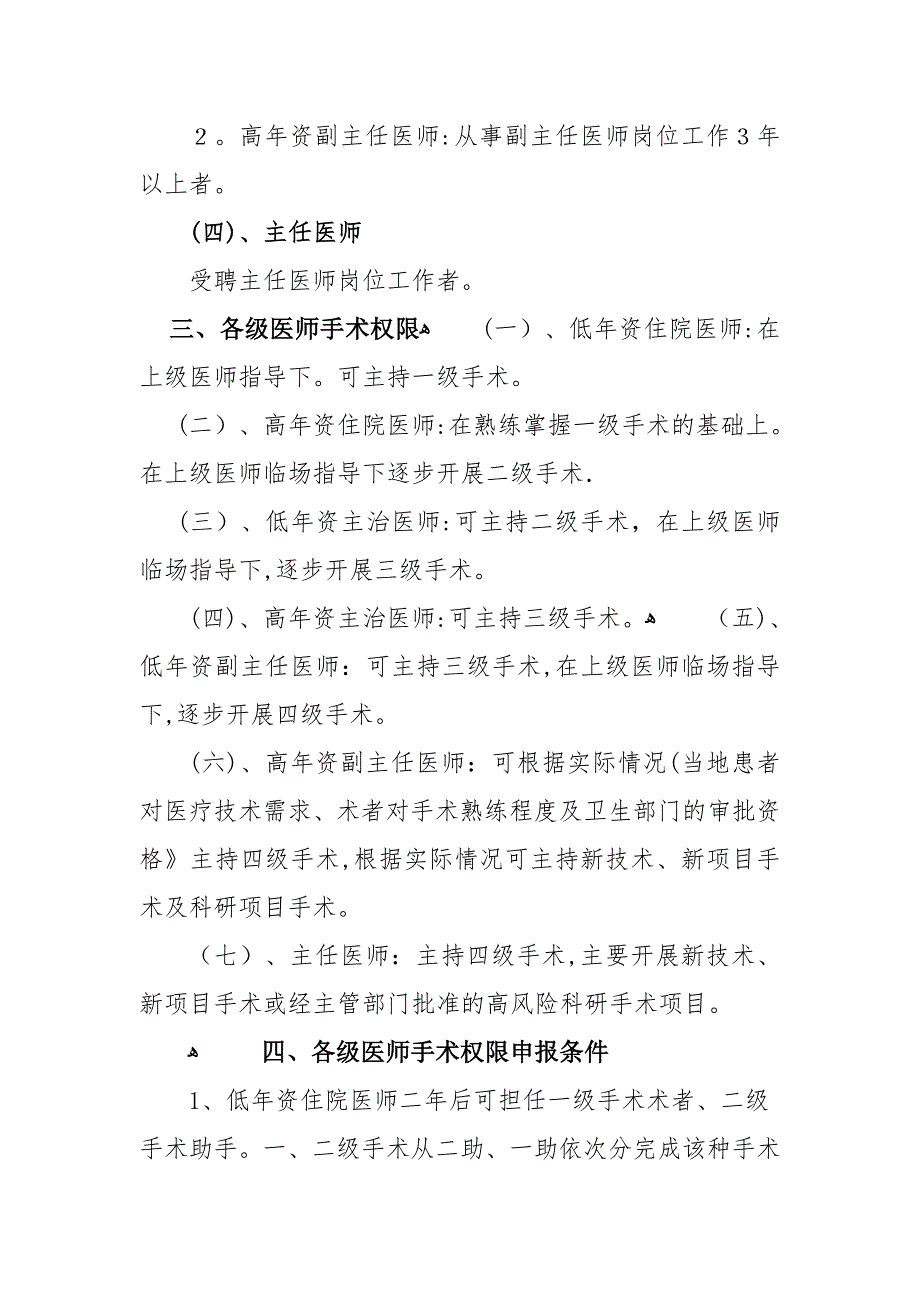 ２。高年资副主任医师:从事副主任医师岗位工作３年
以上者。
(四)、主任医师
受聘主任医师岗位工作者。
三、各级医师手术权限ﻫ (一）、低年资住院医师:在
上级医师指导下。可主持一级手术。
(二）、高年资住院医师:在熟练掌握一级手术的基础上。
在上级医师临场指导下逐步开展二级手术.
(三）、低年资主治医师:可主持二级手术，在上级医师
临场指导下,逐步开展三级手术。
(四)、高年资主治医师:可主持三级手术。ﻫ （五)、
低年资副主任医师：可主持三级手术,在上级医师临场指导
下,逐步开展四级手术。
(六)、高年资副主任医师：可根据实际情况(当地患者
对医疗技术需求、术者对手术熟练程度及卫生部门的审批资
格》主持四级手术,根据实际情况可主持新技术、新项目手
术及科研项目手术。
（七）、主任医师：主持四级手术,主要开展新技术、
新项目手术或经主管部门批准的高风险科研手术项目。
ﻫ 四、各级医师手术权限申报条件
1、低年资住院医师二年后可担任一级手术术者、二级
手术助手。一、二级手术从二助、一助依次分完成该种手术